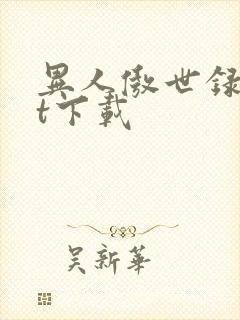 異人傲世録
t下載
吴新華